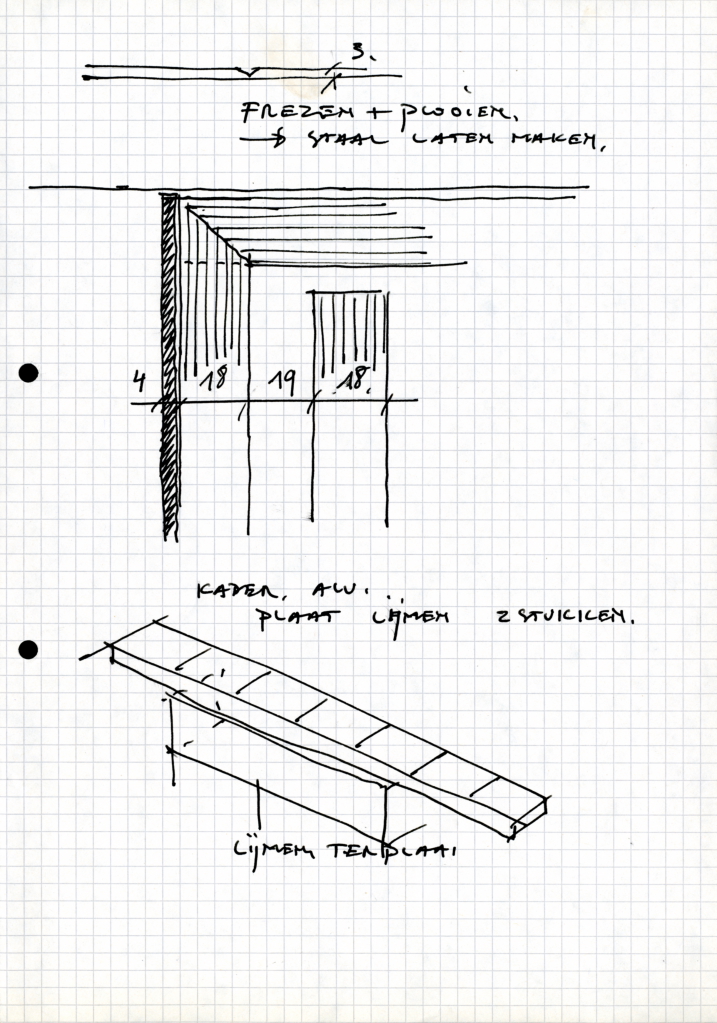 3.
FREZEN + PLOOIEN.
→ STAAL LATEN MAKEN.
4 18 19 18.
KADER. ALU.
PLAAT LIJMEN 2 STUKKEN.
LIJMEN TER PLAAT